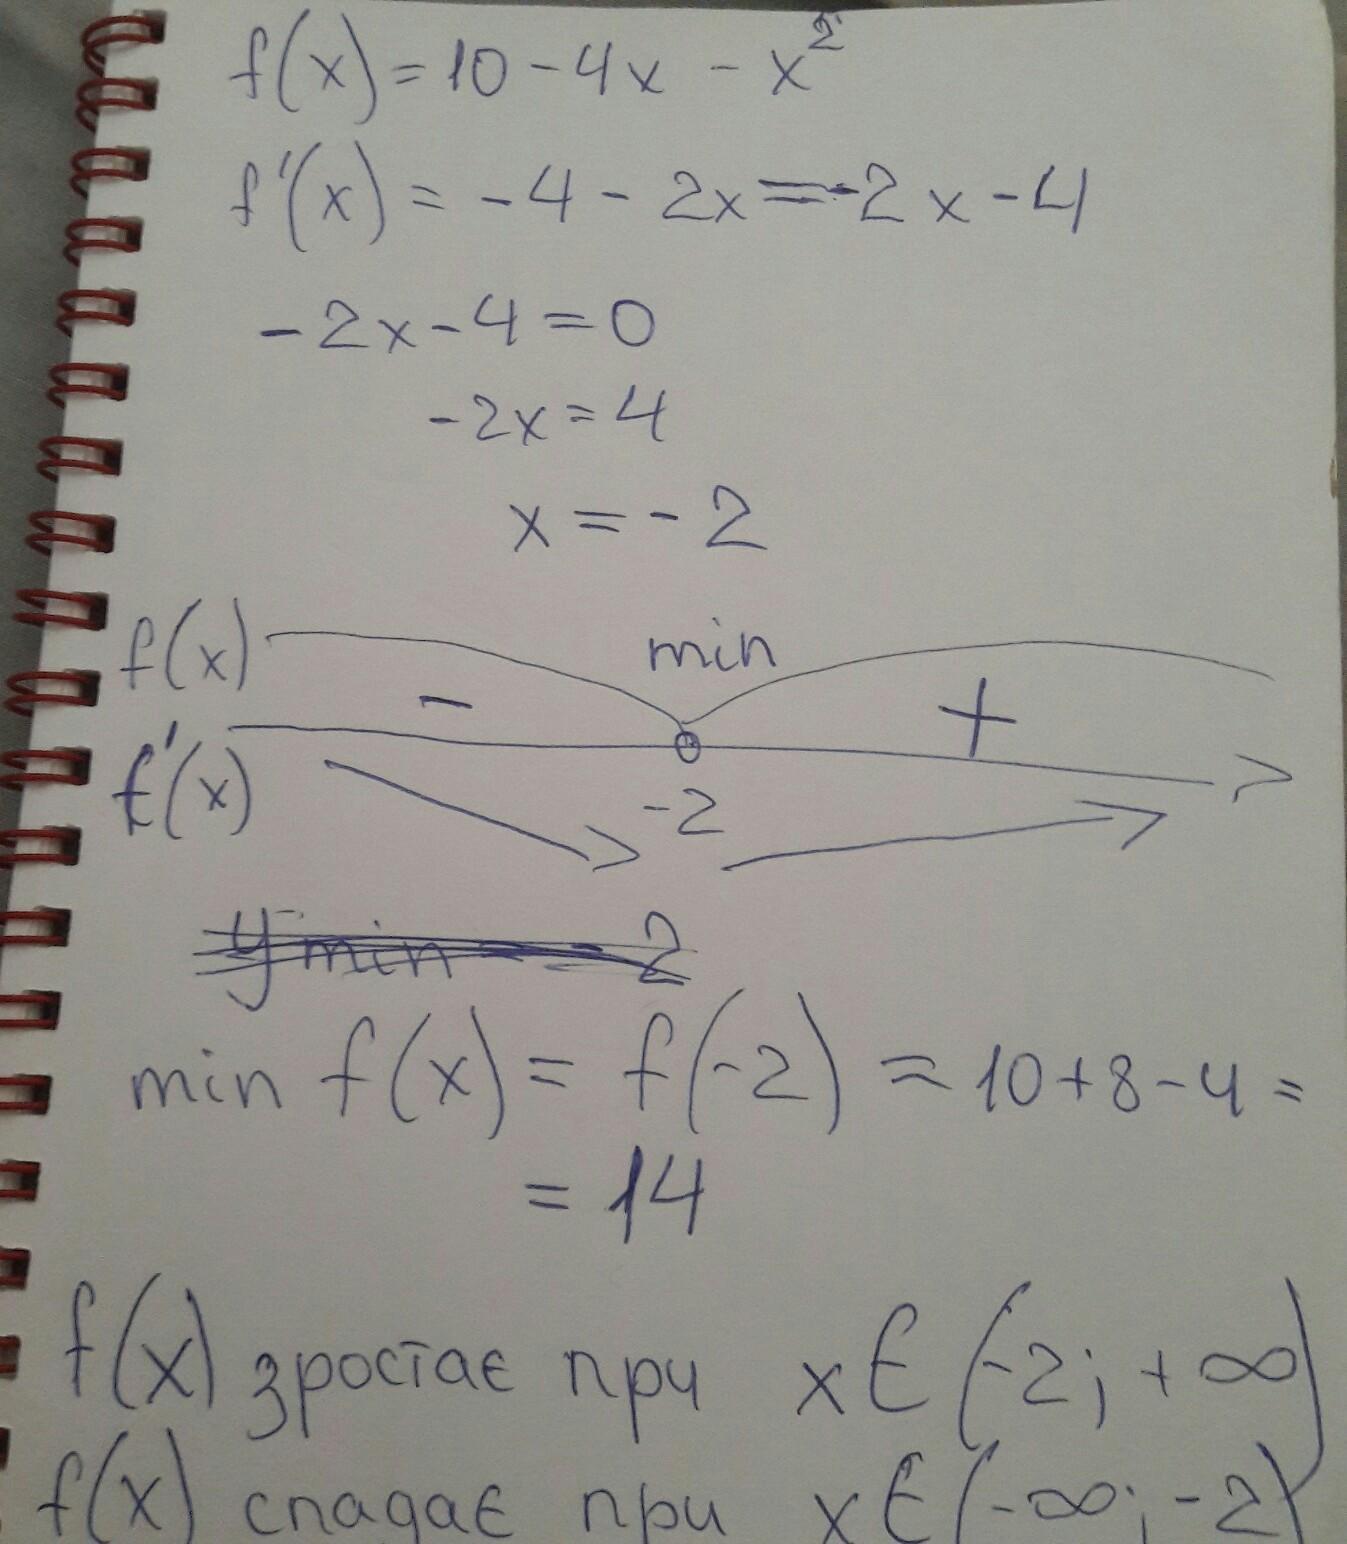 f(x) = 10 - 4x - x²
f'(x) = -4 - 2x = -2x - 4
-2x - 4 = 0
-2x = 4
x = -2
f(x) min
- +
f'(x) -2
y min = -2
min f(x) = f(-2) = 10 + 8 - 4 =
= 14
f(x) зростає при x ∈ (-2; +∞)
f(x) спадає при x ∈ (-∞; -2)